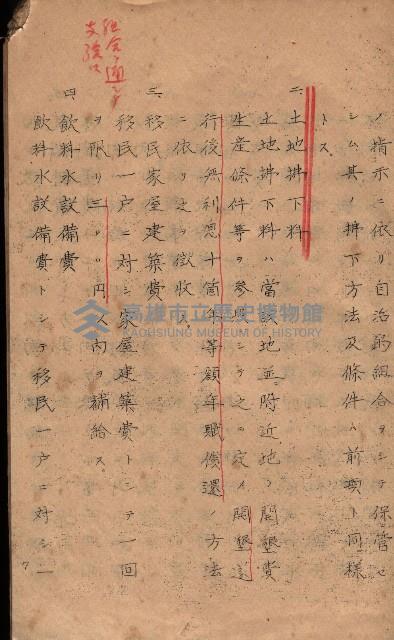 ノ指示ニ依リ自治的組合ヲシテ保管セ
シム其ノ拂下方法及條件ハ前項ト同様
トス
二、土地拂下料
土地拂下料ハ當該地並附近地ノ開墾費
生産條件等ヲ参照シテ之ヲ定メ開墾
行後無利息十箇年等額年賦償還ノ方法
ニ依リ之ヲ徴收ス
三、移民家屋建築費
移民一戸ニ対シ家屋建築費トシテ一回
ヲ限リ三〇〇円以内ヲ補給ス
四、飲料水設備費
飲料水設備費トシテ移民一戸ニ対シ一
組合ヲ通シテ
高雄市立歷史博物館
KAOHSIUNG MUSEUM OF HISTORY
7